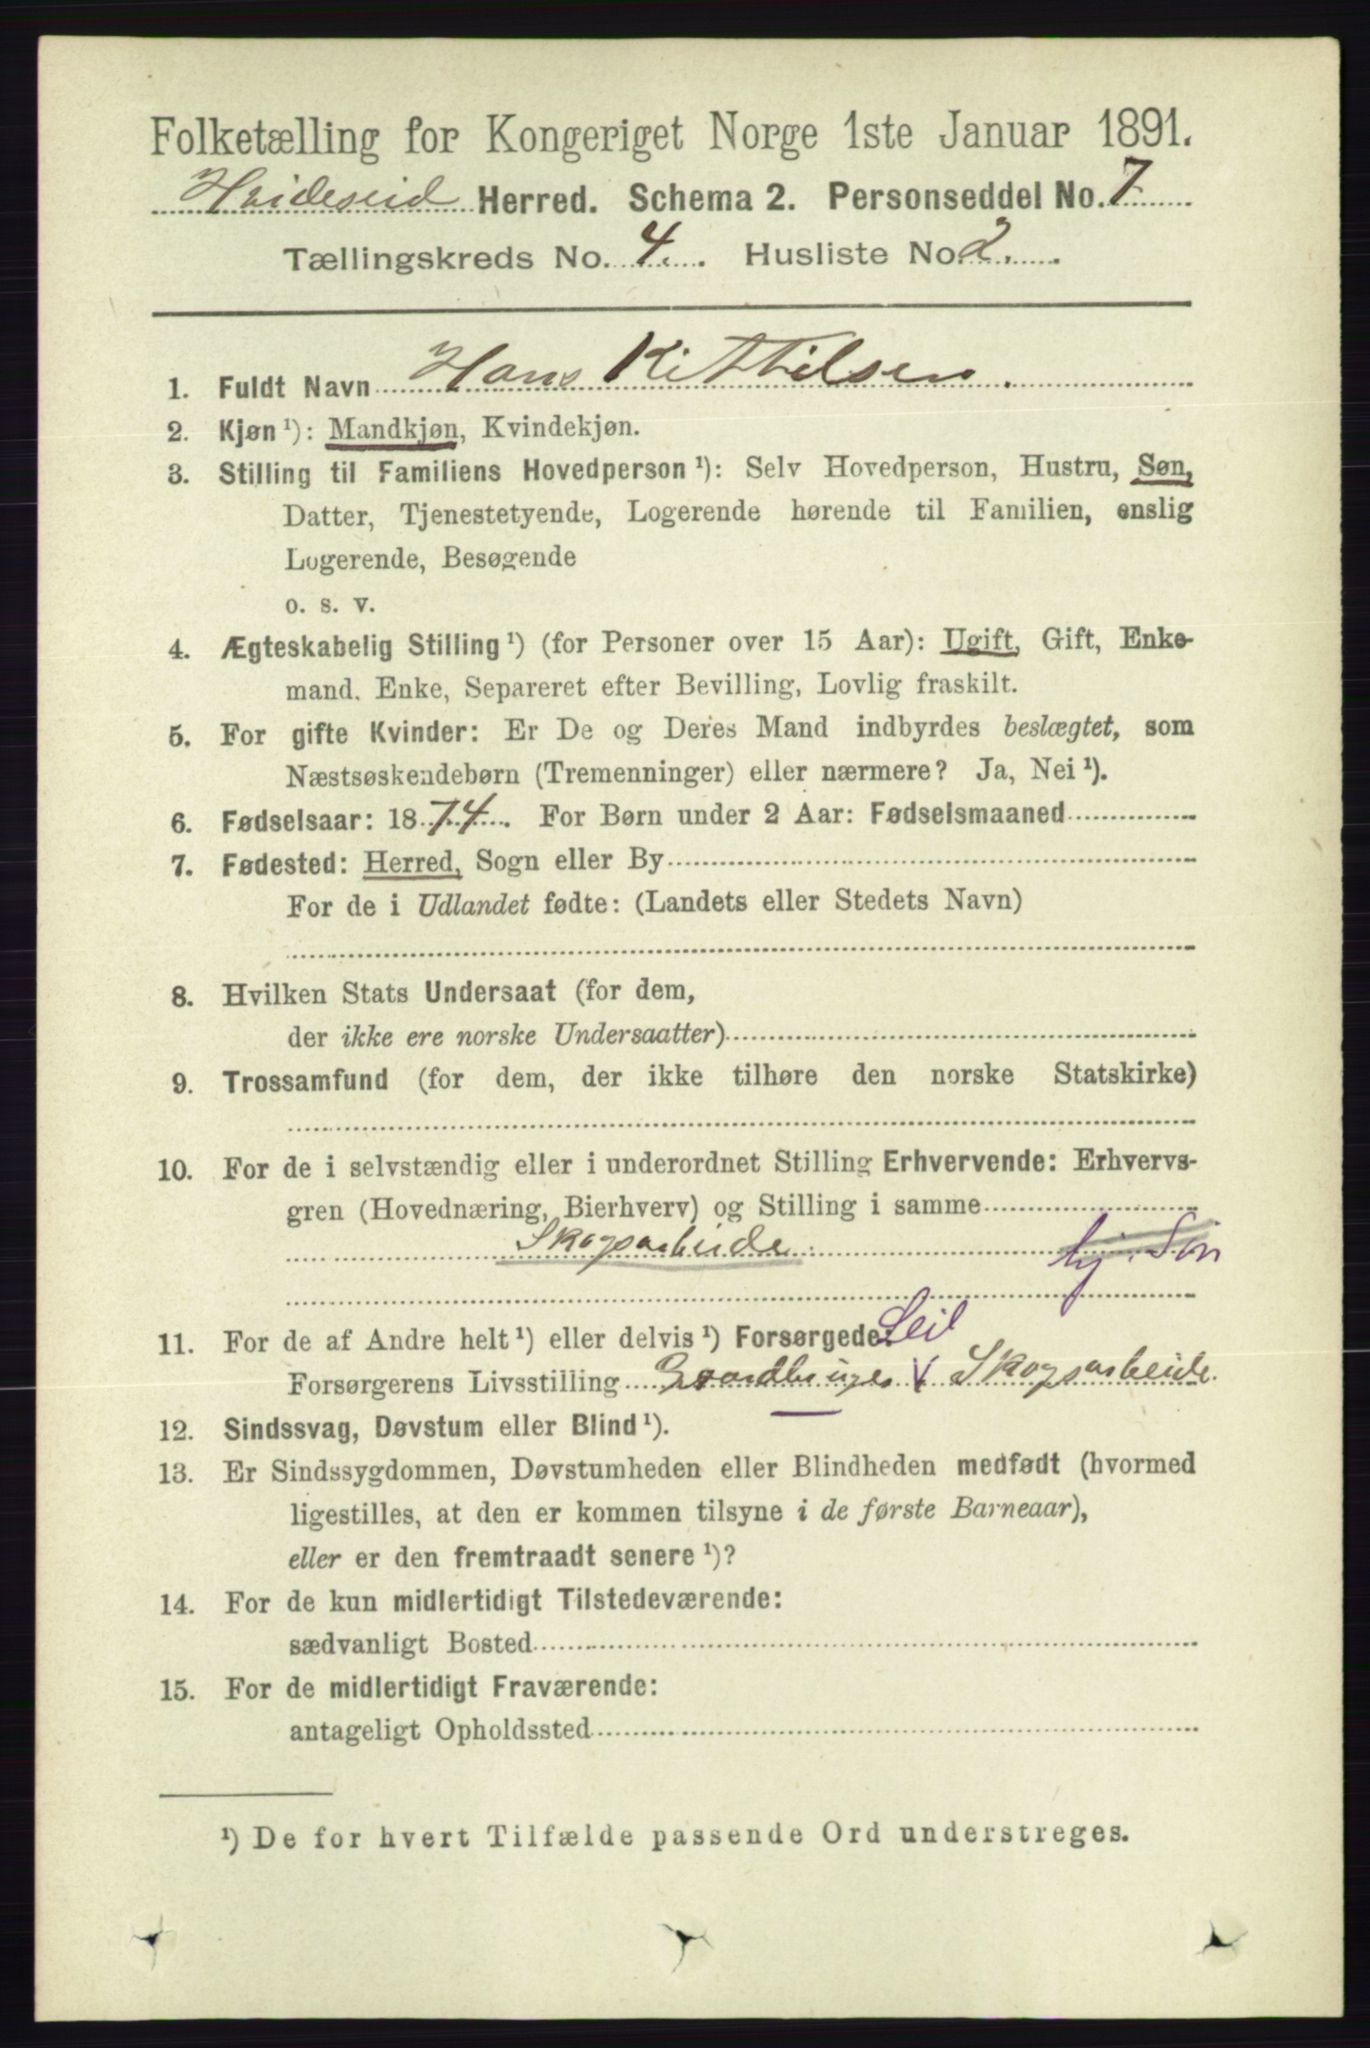 Folketælling for Kongeriget Norge 1ste Januar 1891.
Hvideseid Herred. Schema 2. Personseddel No. 7
Tællingskreds No. 4. Husliste No. 2.
1. Fuldt Navn Hans Kittilsen.
2. Kjøn ¹): Mandkjøn, Kvindekjøn.
3. Stilling til Familiens Hovedperson ¹): Selv Hovedperson, Hustru, Søn,
Datter, Tjenestetyende, Logerende hørende til Familien, enslig
Logerende, Besøgende
o. s. v.
4. Ægteskabelig Stilling ¹) (for Personer over 15 Aar): Ugift, Gift, Enke-
mand. Enke, Separeret efter Bevilling, Lovlig fraskilt.
5. For gifte Kvinder: Er De og Deres Mand indbyrdes beslægtet, som
Næstsøskendebørn (Tremenninger) eller nærmere? Ja, Nei ¹).
6. Fødselsaar: 1874. For Børn under 2 Aar: Fødselsmaaned
7. Fødested: Herred, Sogn eller By
For de i Udlandet fødte: (Landets eller Stedets Navn)
8. Hvilken Stats Undersaat (for dem,
der ikke ere norske Undersaatter)
9. Trossamfund (for dem, der ikke tilhøre den norske Statskirke)
10. For de i selvstændig eller i underordnet Stilling Erhvervende: Erhvervs-
gren (Hovednæring, Bierhverv) og Stilling i samme
Skogsarbeide. tj. Søn
11. For de af Andre helt ¹) eller delvis ¹) Forsørgede: Leil
Forsørgerens Livsstilling Gaardbruger Skogsarbeide.
12. Sindssvag, Døvstum eller Blind ¹).
13. Er Sindssygdommen, Døvstumheden eller Blindheden medfødt (hvormed
ligestilles, at den er kommen tilsyne i de første Barneaar),
eller er den fremtraadt senere ¹)?
14. For de kun midlertidigt Tilstedeværende:
sædvanligt Bosted
15. For de midlertidigt Fraværende:
antageligt Opholdssted
¹) De for hvert Tilfælde passende Ord understreges.